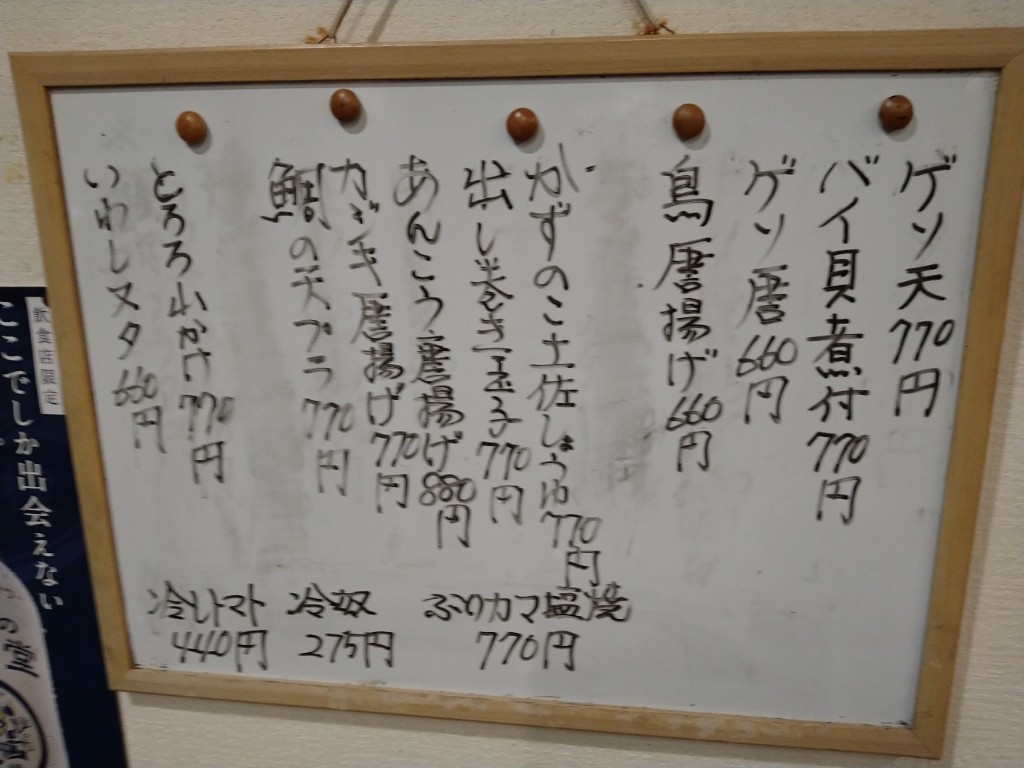 ゲソ天 770円
バイ貝煮付 770円
ゲソ唐 660円
鳥唐揚げ 660円
かずのこ土佐しょうゆ 770円
出し巻き玉子 770円
あんこう唐揚げ 880円
カジキ唐揚げ 770円
鯛の天プラ 770円
とろろ山かけ 770円
いわしヌタ 660円
ぶりカマ塩焼
770円
冷奴
275円
冷しトマト
440円
飲食店限定
ここでしか出会えない